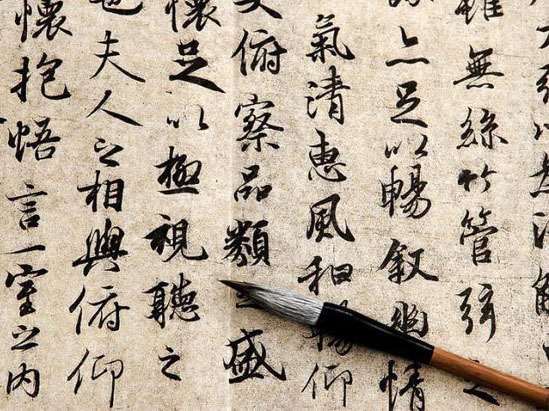 雖無絲竹管弦之
亦足以暢敘幽情
氣清惠風和暢仰
俯察品類之盛
懷足以極視聽之
也夫人之相與俯仰
懷抱悟言一室之內